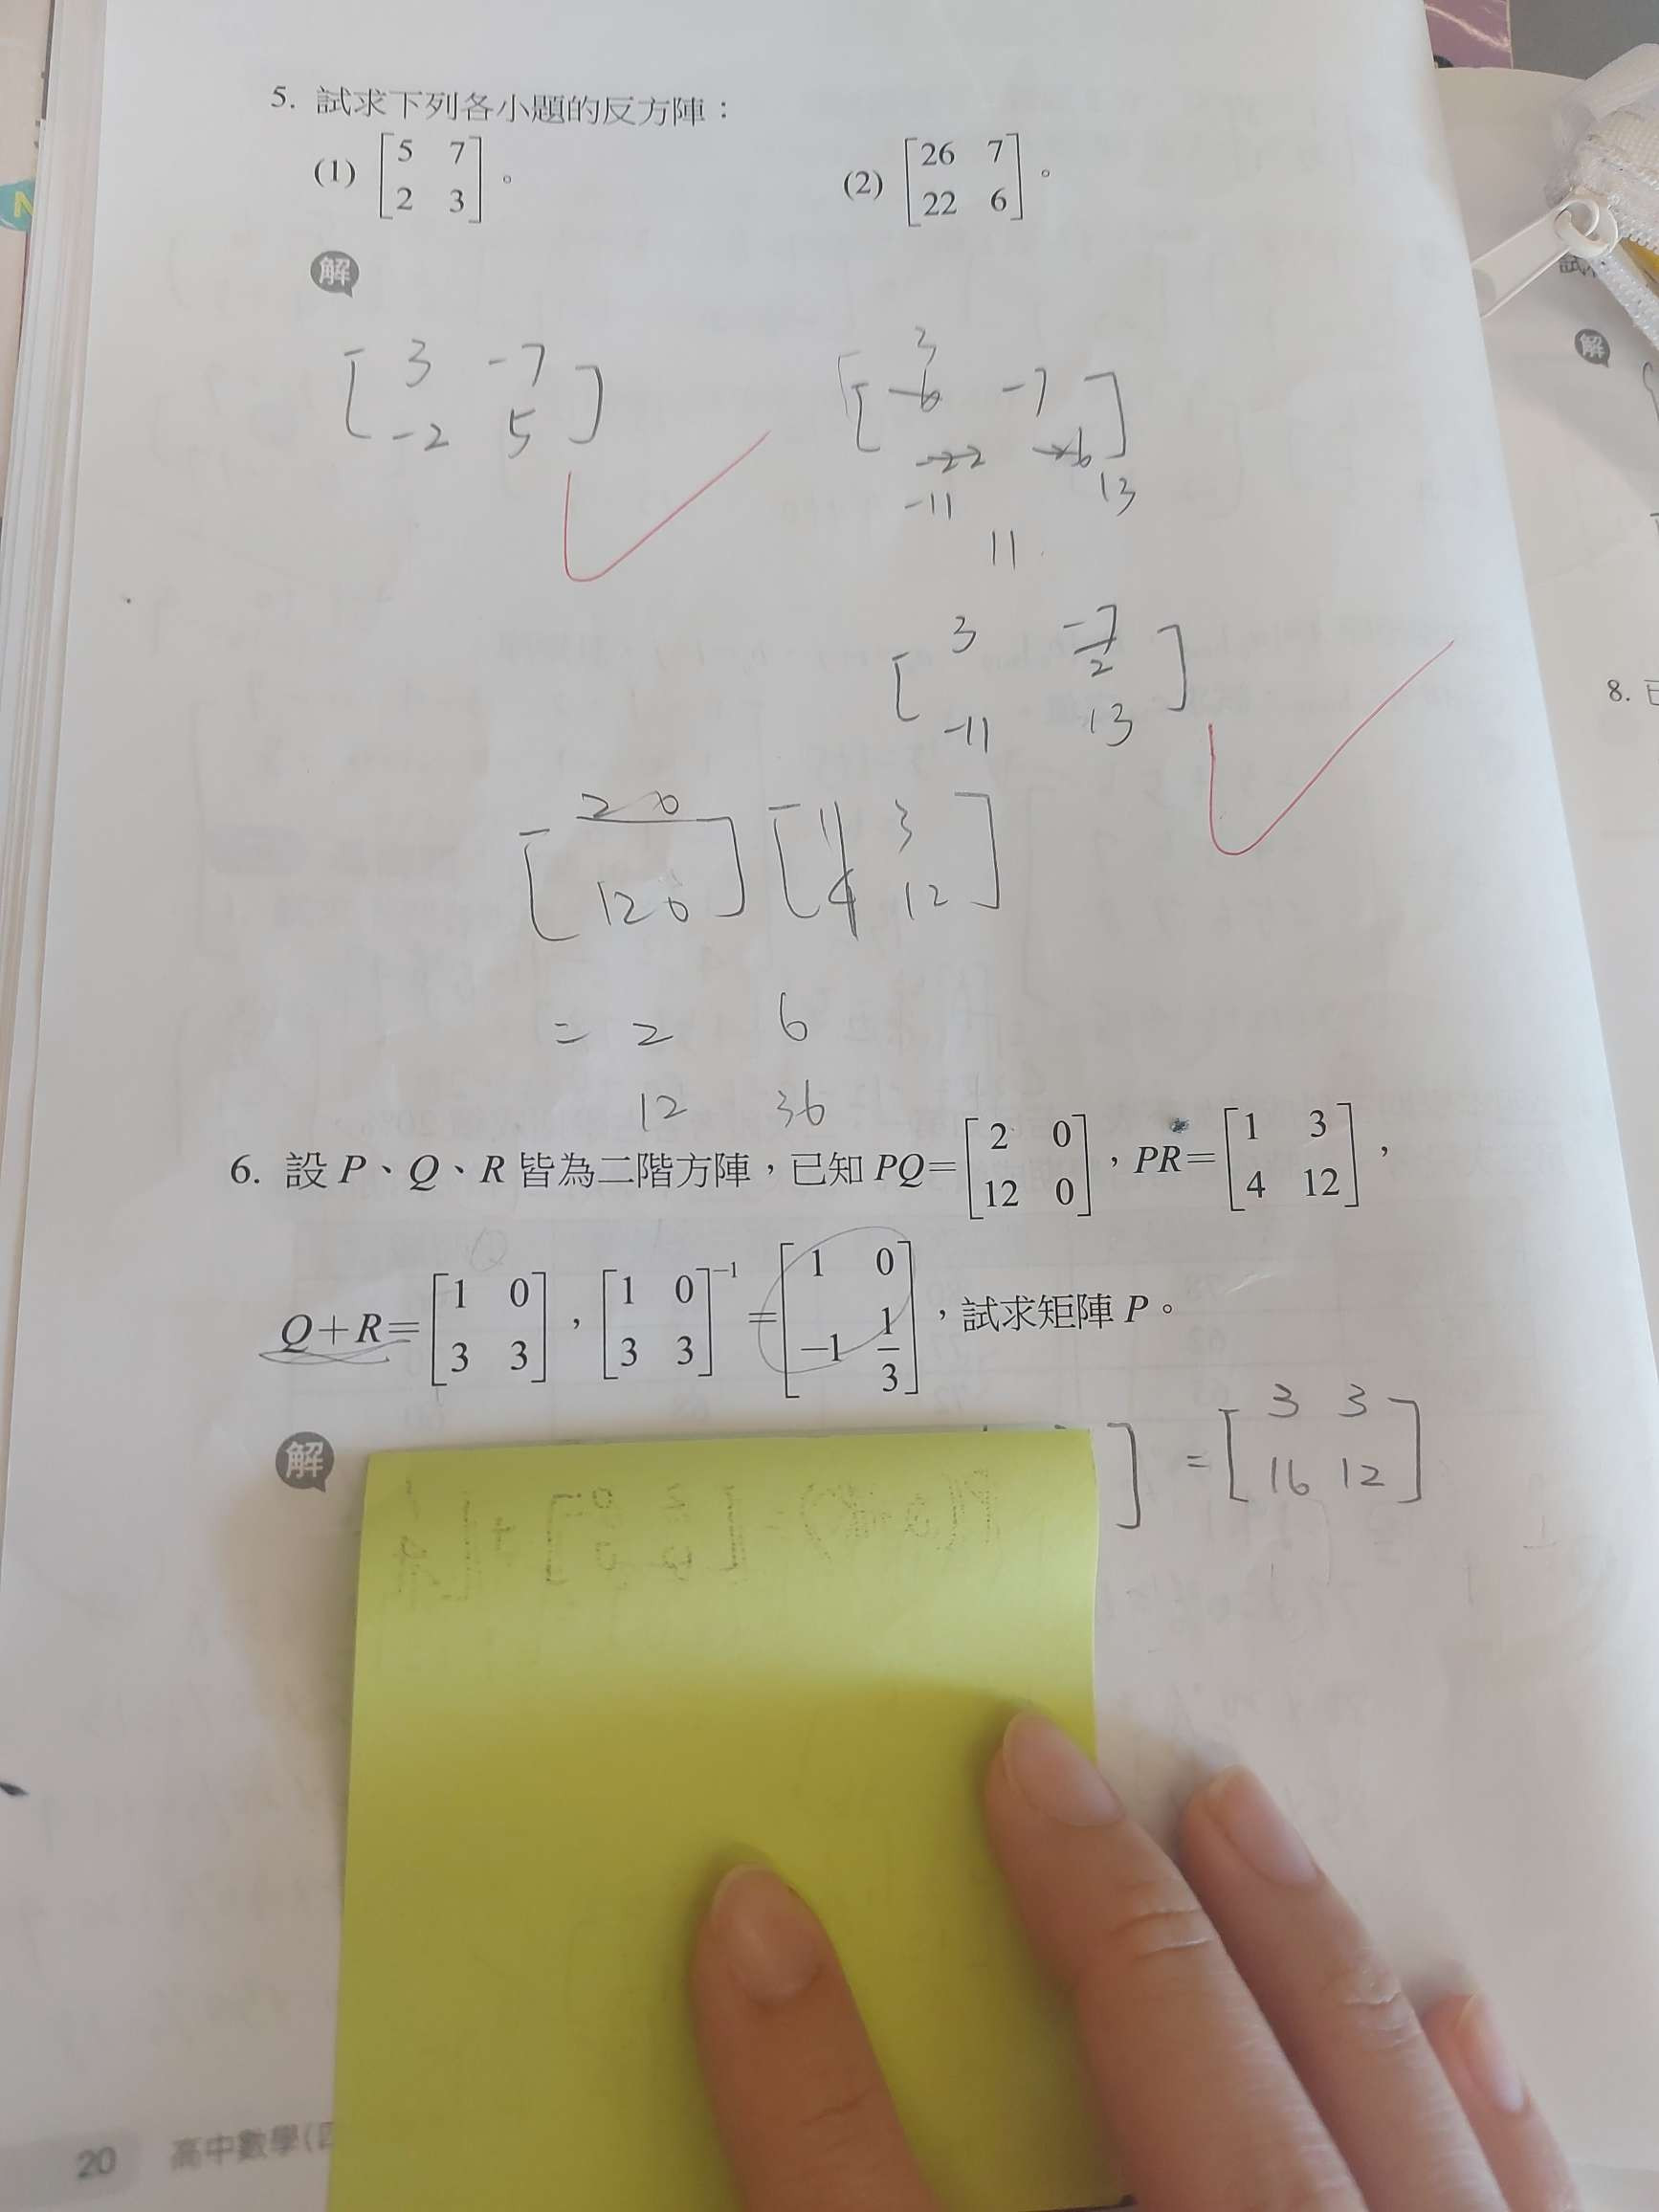 5. 試求下列各小題的反方陣：
(1) [5 7 2 3]。 (2) [26 7 22 6]。
解
[3 -7 -2 5]
3
-7
-11 13
11
[3 -7/2 -11 13]
[20 120] [1 3 4 12]
= 2 6
12 36
6. 設 P、Q、R 皆為二階方陣，已知 PQ=[2 0 12 0]，PR=[1 3 4 12]，
Q+R=[1 0 3 3]，[1 0 3 3]⁻¹=[1 0 -1 1/3]，試求矩陣 P。
解
] = [3 3 16 12]
20 高中數學(
解
8.